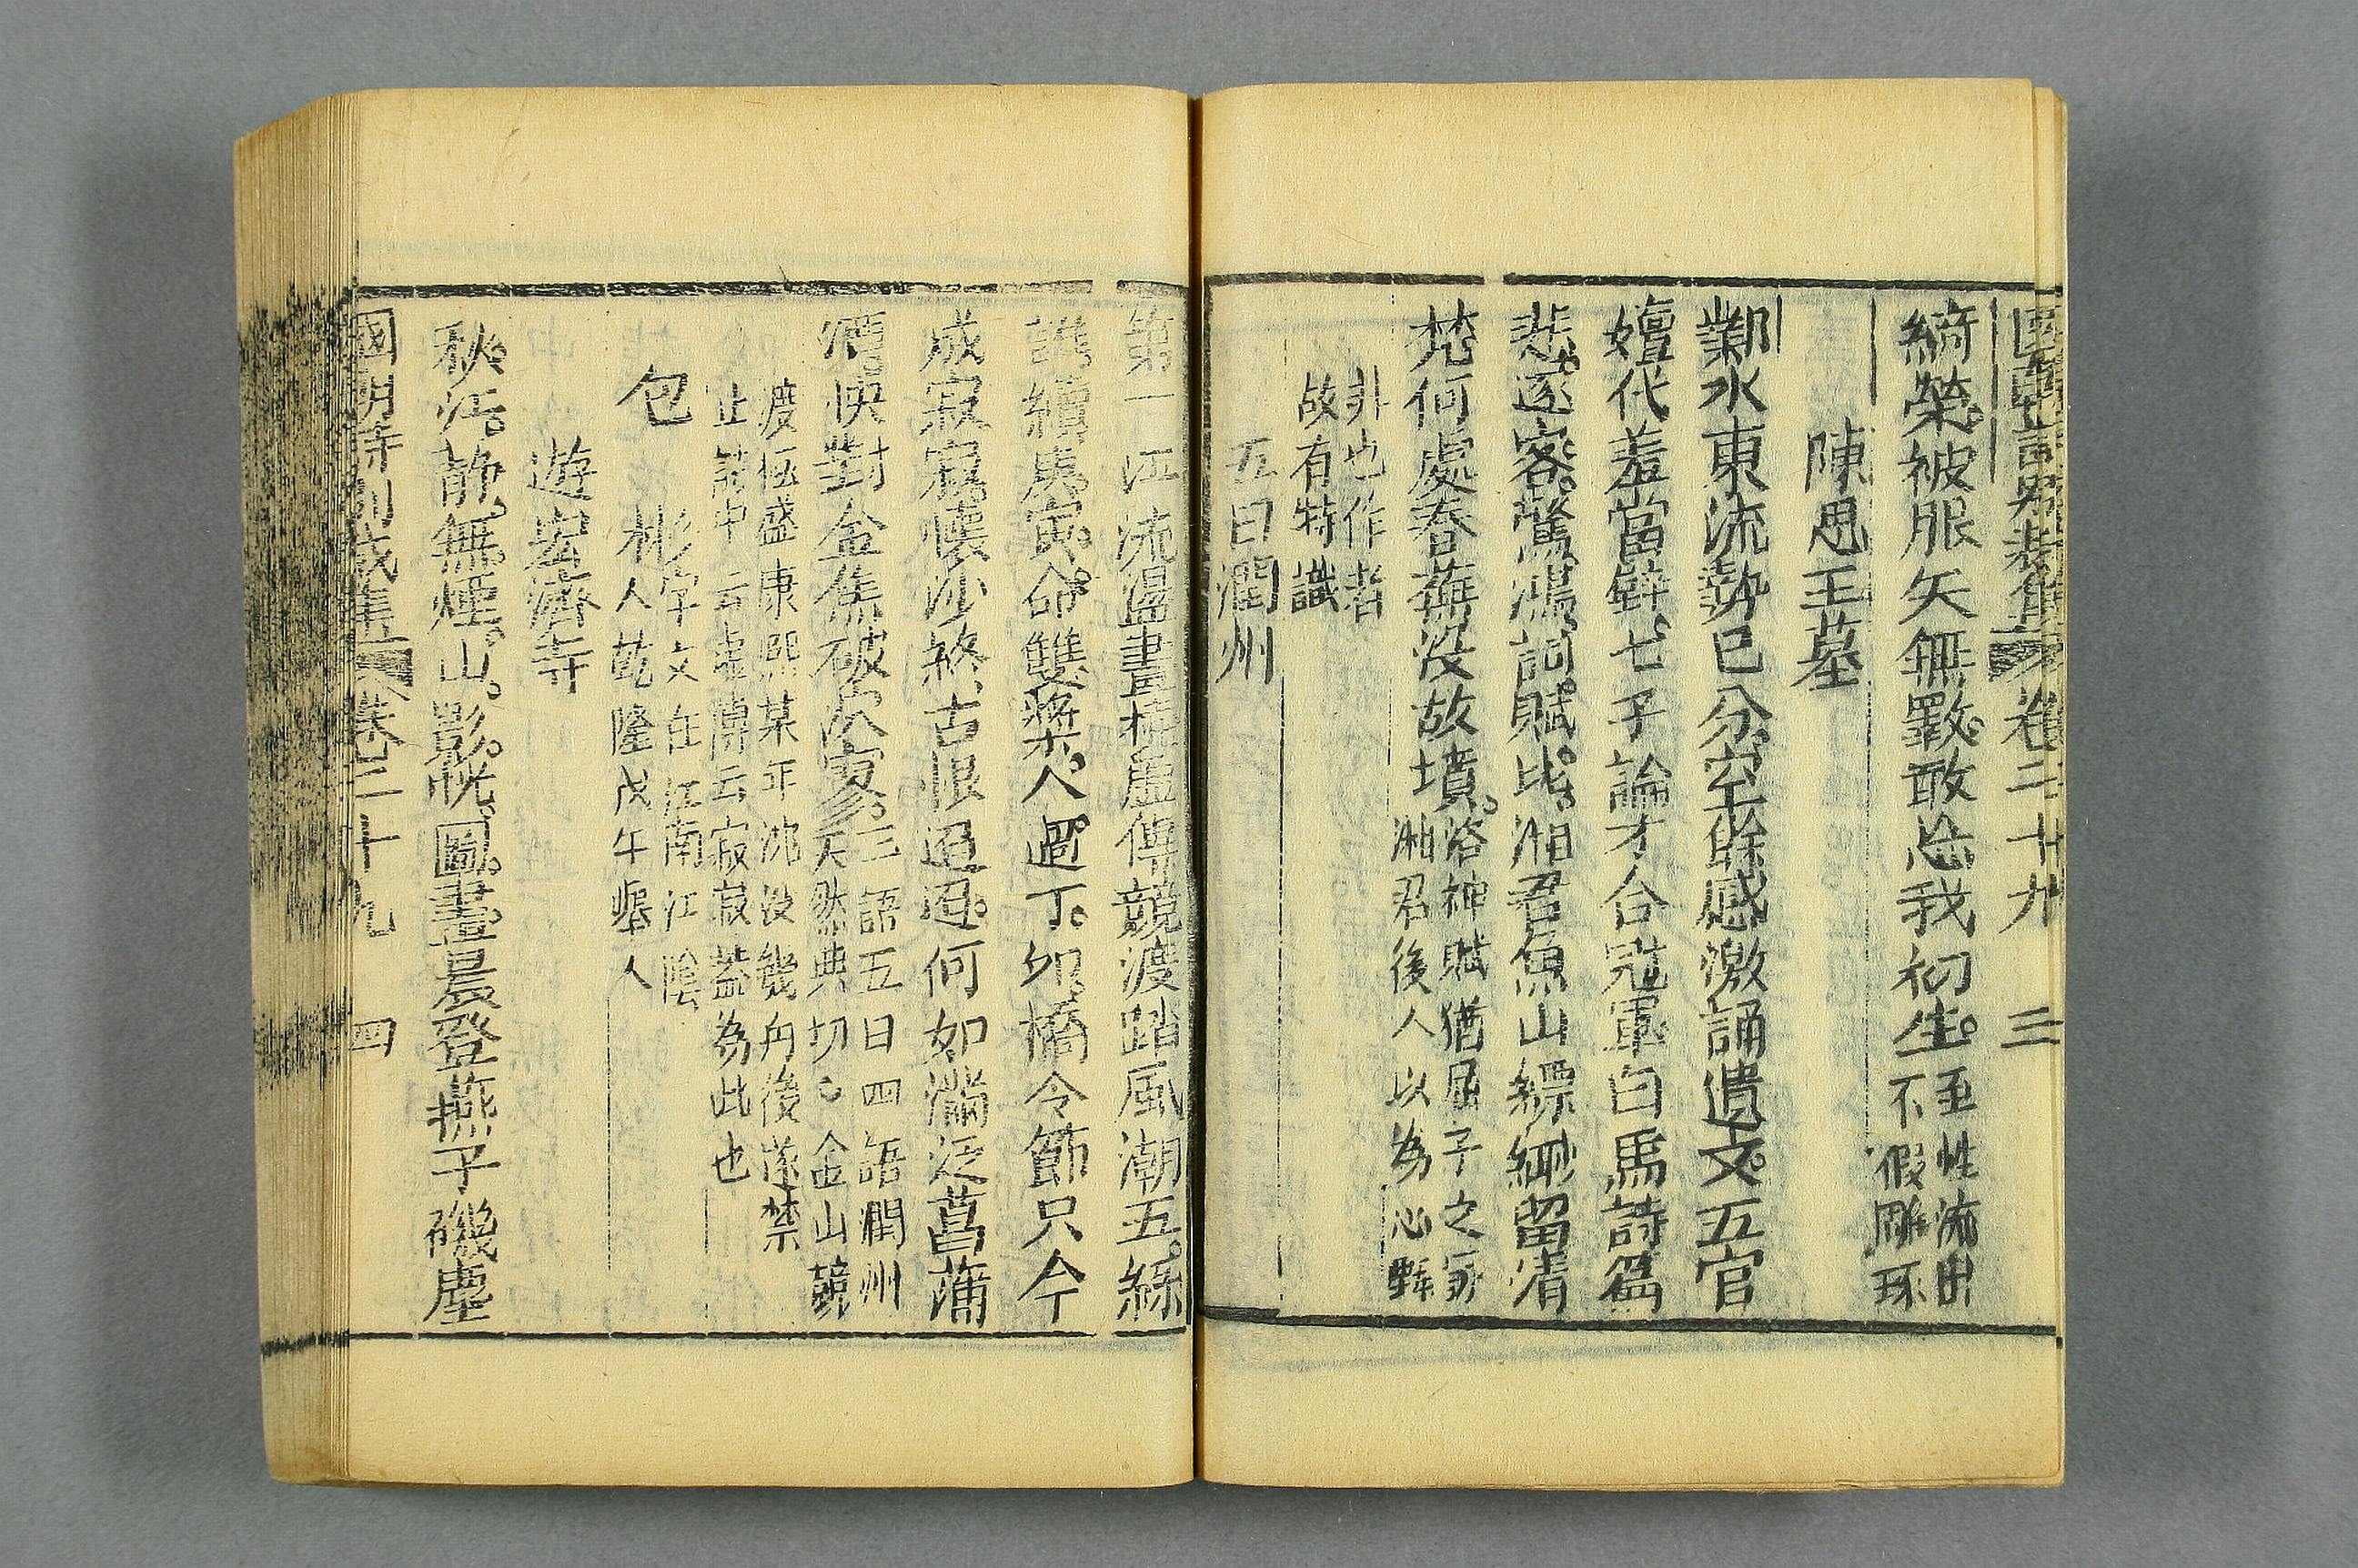 國朝詩別裁集 卷二十九 三
綺榮。被服矢無斁。敢忘我初生。至性流出
不假雕琢
陳思王墓
鄴水東流勢已分。空餘感激誦遺文。五官
嬗代羞當辟。七子論才合冠軍。白馬詩篇
悲逐客。驚鴻詞賦比湘君。魚山縹緲留清
梵。何處春蕪沒故墳。洛神賦猶屈子之
湘君後人以為心
非也作者
故有特識
五日潤州
第一江流盪畫橈。虛傳競渡踏風潮。五絲
誰續庚寅命。雙槳人過丁卯橋。令節只今
成寂寞。懷沙終古恨迢迢。何如滿泛菖蒲
酒。快對金焦破泬寥。三語五日四語潤州
天然典切。金山競
渡極盛康熙某年沈沒幾舟後遂禁
止詩中云虛傳云寂寞蓋為此也
包 彬 彬字文在江南江陰
人乾隆戊午舉人
遊宏濟寺
秋江靜無煙。山影恍圖畫。晨登燕子磯。塵
國朝詩別裁集 卷二十九 四